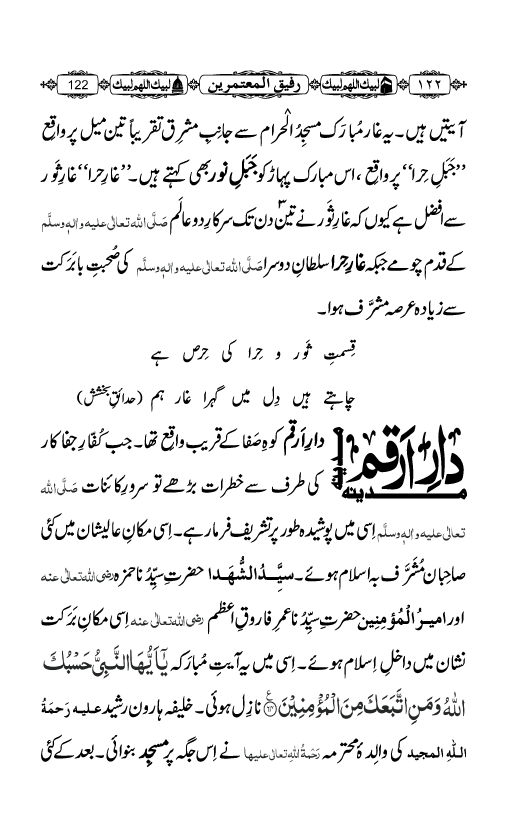 ۱۲۲ لبیک اللھم لبیک رفیق المعتمرین لبیک اللھم لبیک 122
آیتیں ہیں۔ یہ غار مُبارَک مسجِدُ الْحرام سے جانبِ مشرِق تقریباً تین میل پر واقِع
”جَبَلِ حِرا“ پر واقِع ، اس مبارک پہاڑ کو جَبَلِ نور بھی کہتے ہیں۔ ”غارِ حرا“ غارِ ثَور
سے افضل ہے کیوں کہ غارِ ثَور نے تین ۳ دن تک سرکارِ دو عالَم صَلَّی اللہ تعالٰی علیہ واٰلہٖ وسلَّم
کے قدم چومے جبکہ غارِ حرا سلطانِ دوسرا صَلَّی اللہ تعالٰی علیہ واٰلہٖ وسلَّم کی صُحبتِ بابَرَکت
سے زیادہ عرصہ مشرَّف ہوا۔
قِسمتِ ثَور و حِرا کی حِرص ہے
چاہتے ہیں دِل میں گہرا غار ہم (حدائقِ بخشش)
دارِ اَرقم مدینہ مدینہ
دارِ اَرقم کوہِ صَفا کے قریب واقِع تھا۔ جب کُفّارِ جفا کار
کی طرف سے خطرات بڑھے تو سرورِ کائنات صَلَّی اللہ
تعالٰی علیہ واٰلہٖ وسلَّم اِسی میں پوشیدہ طور پر تشریف فرما رہے۔ اِسی مکانِ عالیشان میں کئی
صاحِبان مُشَرَّف بہ اسلام ہوئے۔ سیِّدُ الشُّھَدا حضرتِ سیِّدُنا حمزہ رضی اللہ تعالٰی عنہ
اور امیرُ الْمُؤمِنین حضرتِ سیِّدُنا عمرِ فاروقِ اعظم رضی اللہ تعالٰی عنہ اِسی مکانِ بَرَکت
نشان میں داخلِ اِسلام ہوئے۔ اِسی میں یہ آیتِ مُبارَکہ يٰۤاَيُّهَا النَّبِيُّ حَسْبُكَ
اللّٰهُ وَمَنِ اتَّبَعَكَ مِنَ الْمُؤْمِنِيْنَ ﴿۶۴﴾ نازِل ہوئی۔ خلیفہ ہارون رشید علیہ رَحمَۃُ
اللّٰہِ المجید کی والِدۂ محترمہ رَحْمَۃُ اللّٰہِ تعالٰی علیہا نے اِس جگہ پر مسجِد بنوائی۔ بعد کے کئی